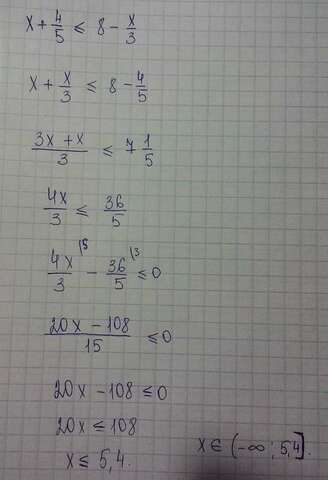 x + 4/5 ≤ 8 - x/3
x + x/3 ≤ 8 - 4/5
(3x + x)/3 ≤ 7 1/5
4x/3 ≤ 36/5
4x/3 \5 - 36/5 \3 ≤ 0
(20x - 108)/15 ≤ 0
20x - 108 ≤ 0
20x ≤ 108
x ≤ 5,4. x ∈ (-∞; 5,4].